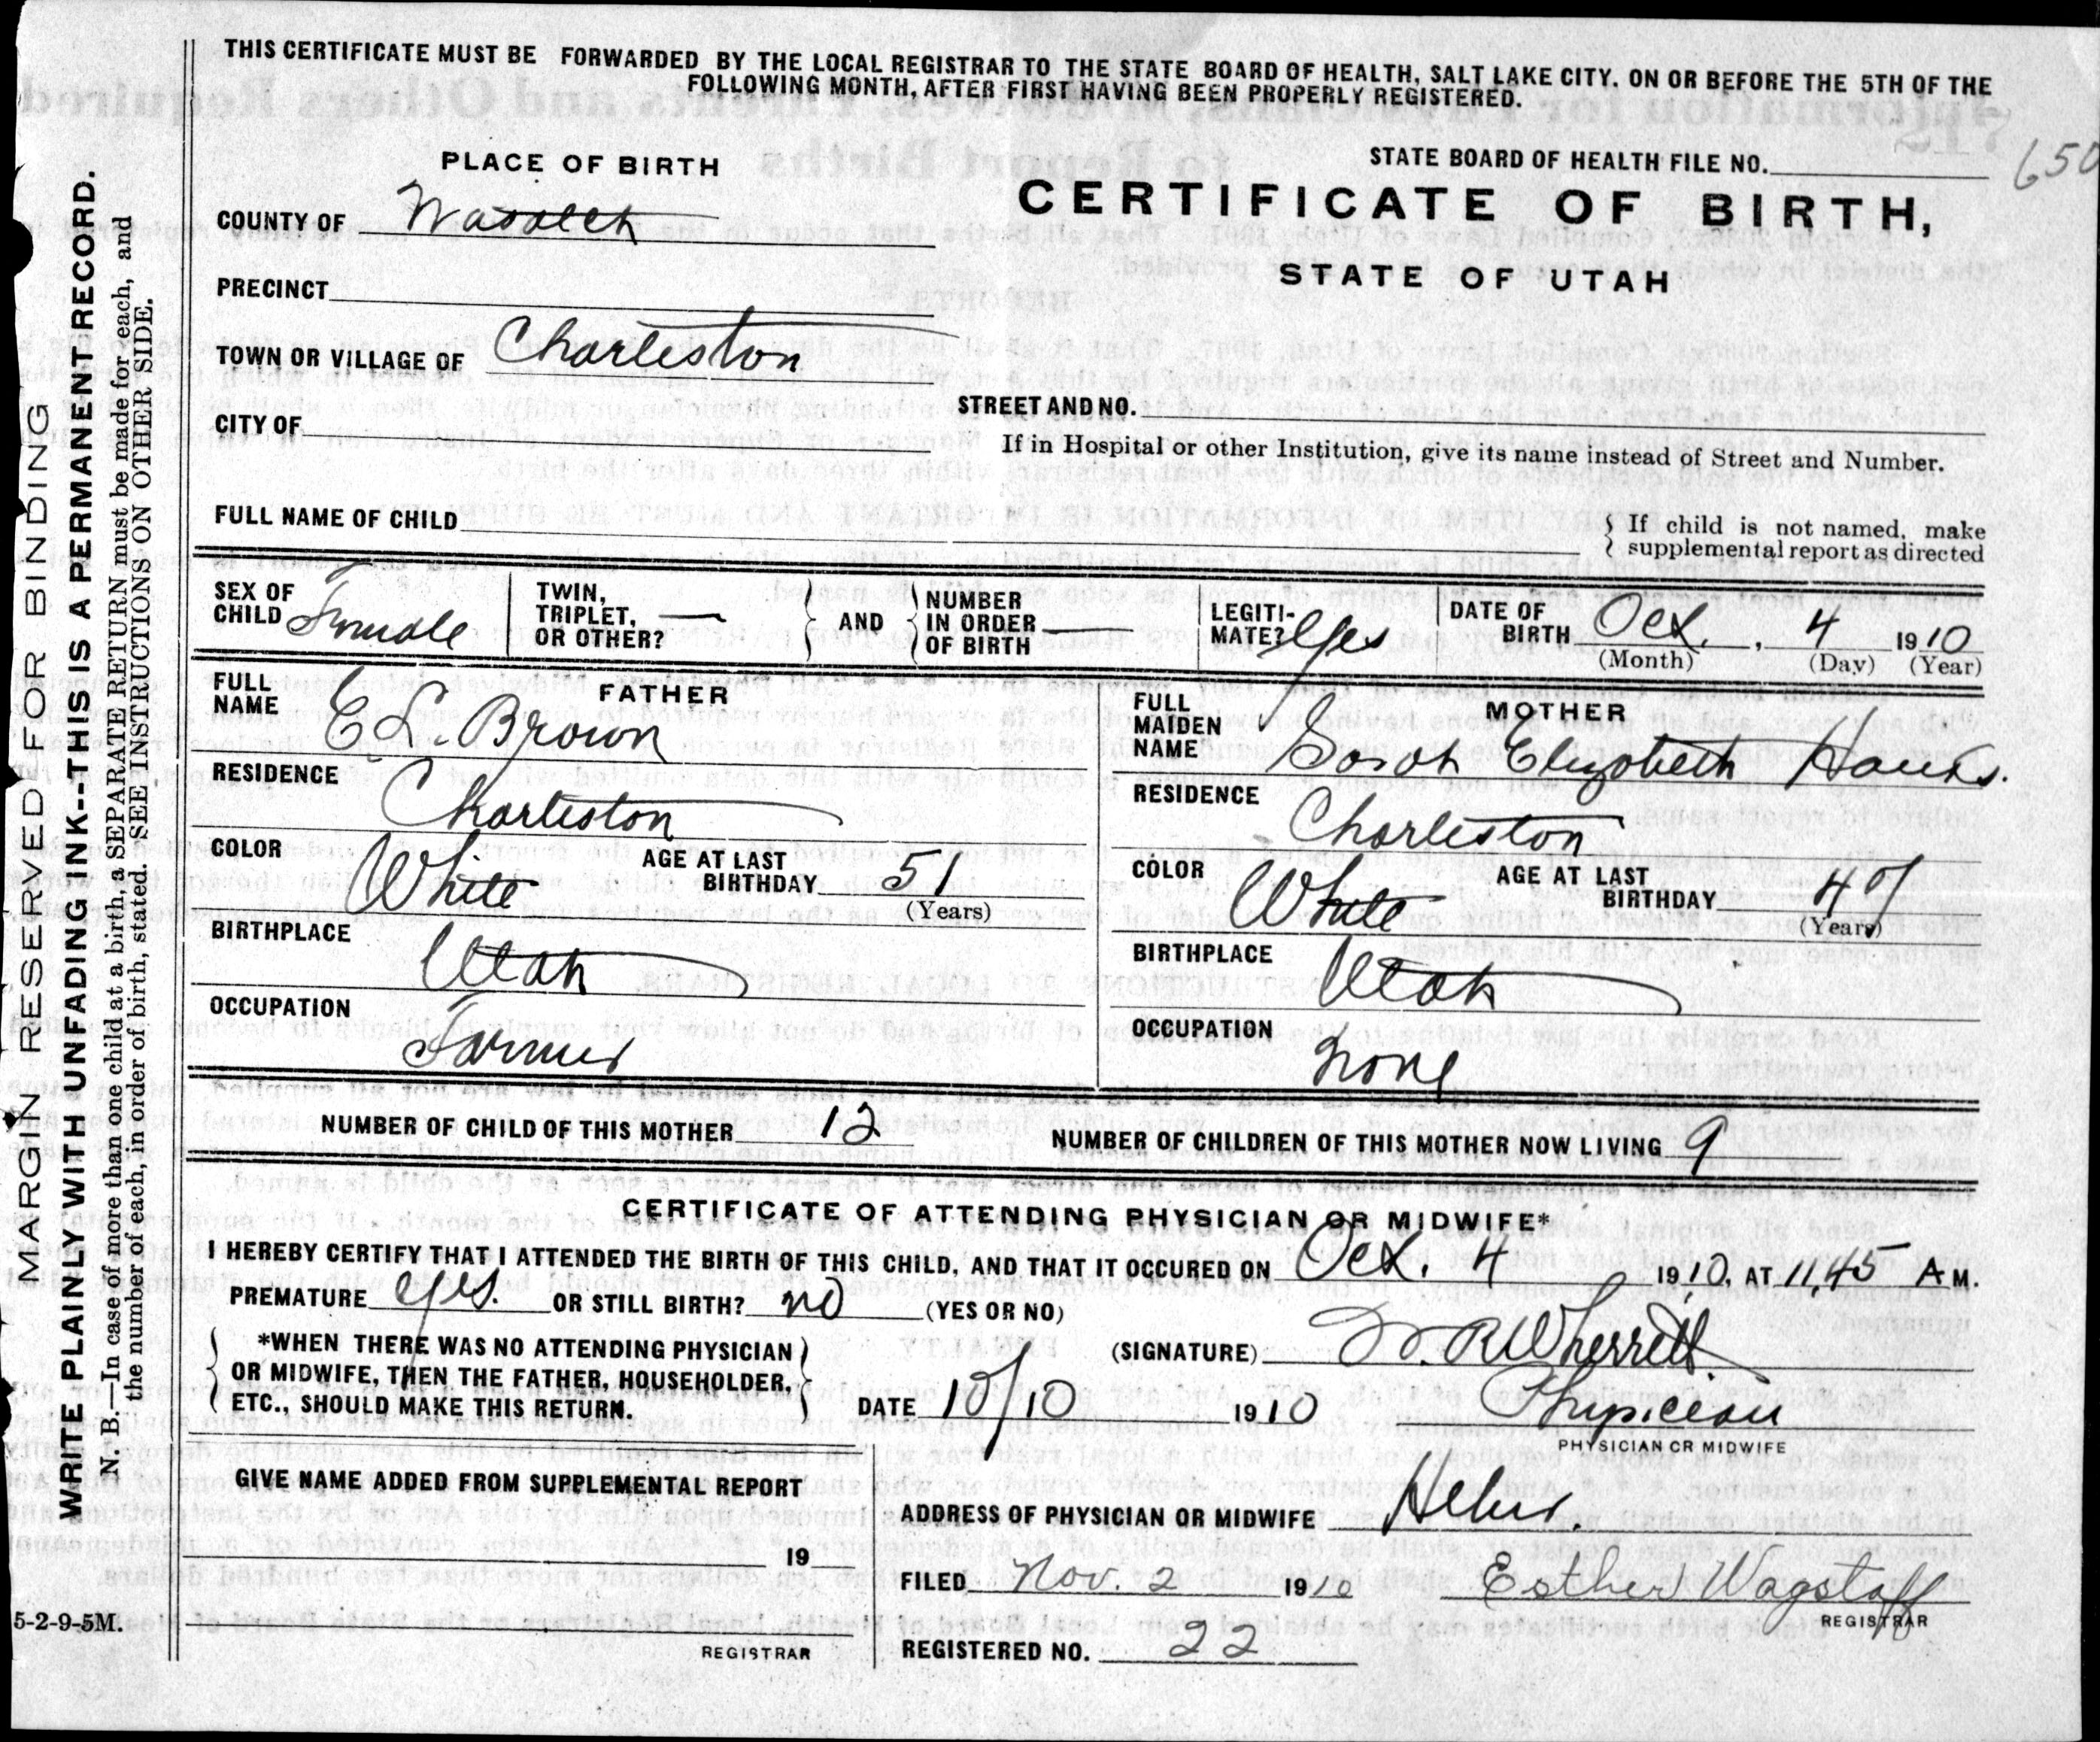 THIS CERTIFICATE MUST BE FORWARDED BY THE LOCAL REGISTRAR TO THE STATE BOARD OF HEALTH, SALT LAKE CITY. ON OR BEFORE THE 5TH OF THE
FOLLOWING MONTH, AFTER FIRST HAVING BEEN PROPERLY REGISTERED.
MARGIN RESERVED FOR BINDING
WRITE PLAINLY WITH UNFADING INK--THIS IS A PERMANENT RECORD.
N. B.—In case of more than one child at a birth, a SEPARATE RETURN must be made for each, and
the number of each, in order of birth, stated. SEE INSTRUCTIONS ON OTHER SIDE.
PLACE OF BIRTH
STATE BOARD OF HEALTH FILE NO.
650
COUNTY OF Wasatch
CERTIFICATE OF BIRTH,
STATE OF UTAH
PRECINCT
TOWN OR VILLAGE OF Charleston
STREET AND NO.
CITY OF
If in Hospital or other Institution, give its name instead of Street and Number.
FULL NAME OF CHILD
{ If child is not named, make
supplemental report as directed
SEX OF CHILD Female
TWIN, TRIPLET, OR OTHER? —
AND
NUMBER IN ORDER OF BIRTH —
LEGITI-MATE? Yes
DATE OF BIRTH Oct. , 4 1910
(Month) (Day) (Year)
FATHER
FULL NAME E L. Brown
RESIDENCE Charleston
COLOR White
AGE AT LAST BIRTHDAY 51
(Years)
BIRTHPLACE Utah
OCCUPATION Farmer
MOTHER
FULL MAIDEN NAME Sarah Elizabeth
RESIDENCE Charleston
COLOR White
AGE AT LAST BIRTHDAY
(Years)
BIRTHPLACE Utah
OCCUPATION none
NUMBER OF CHILD OF THIS MOTHER 12
NUMBER OF CHILDREN OF THIS MOTHER NOW LIVING 9
CERTIFICATE OF ATTENDING PHYSICIAN OR MIDWIFE*
I HEREBY CERTIFY THAT I ATTENDED THE BIRTH OF THIS CHILD, AND THAT IT OCCURED ON Oct. 4 1910, AT 11,45 A M.
PREMATURE Yes. OR STILL BIRTH? no (YES OR NO)
*WHEN THERE WAS NO ATTENDING PHYSICIAN
OR MIDWIFE, THEN THE FATHER, HOUSEHOLDER,
ETC., SHOULD MAKE THIS RETURN.
(SIGNATURE) W. R Wherritt
DATE 10/10 1910
Physician
PHYSICIAN OR MIDWIFE
GIVE NAME ADDED FROM SUPPLEMENTAL REPORT
ADDRESS OF PHYSICIAN OR MIDWIFE Heber.
19
FILED Nov. 2 1910
Esther Wagstaff
REGISTRAR
5-2-9-5M.
REGISTRAR
REGISTERED NO. 22